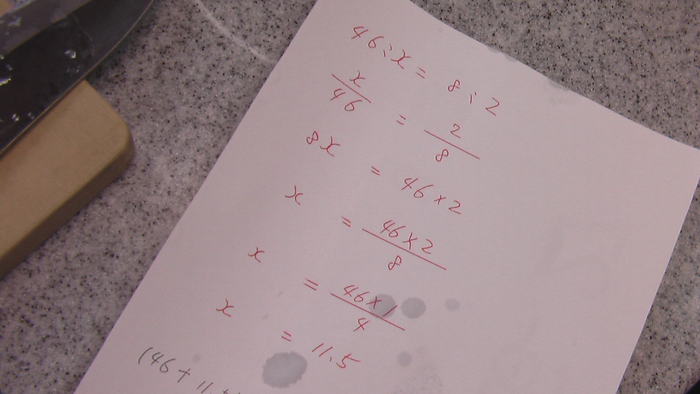 46:x = 8:2
x/46 = 2/8
8x = 46×2
x = 46×2/8
x = 46×1/4
x = 11.5
(46+11+